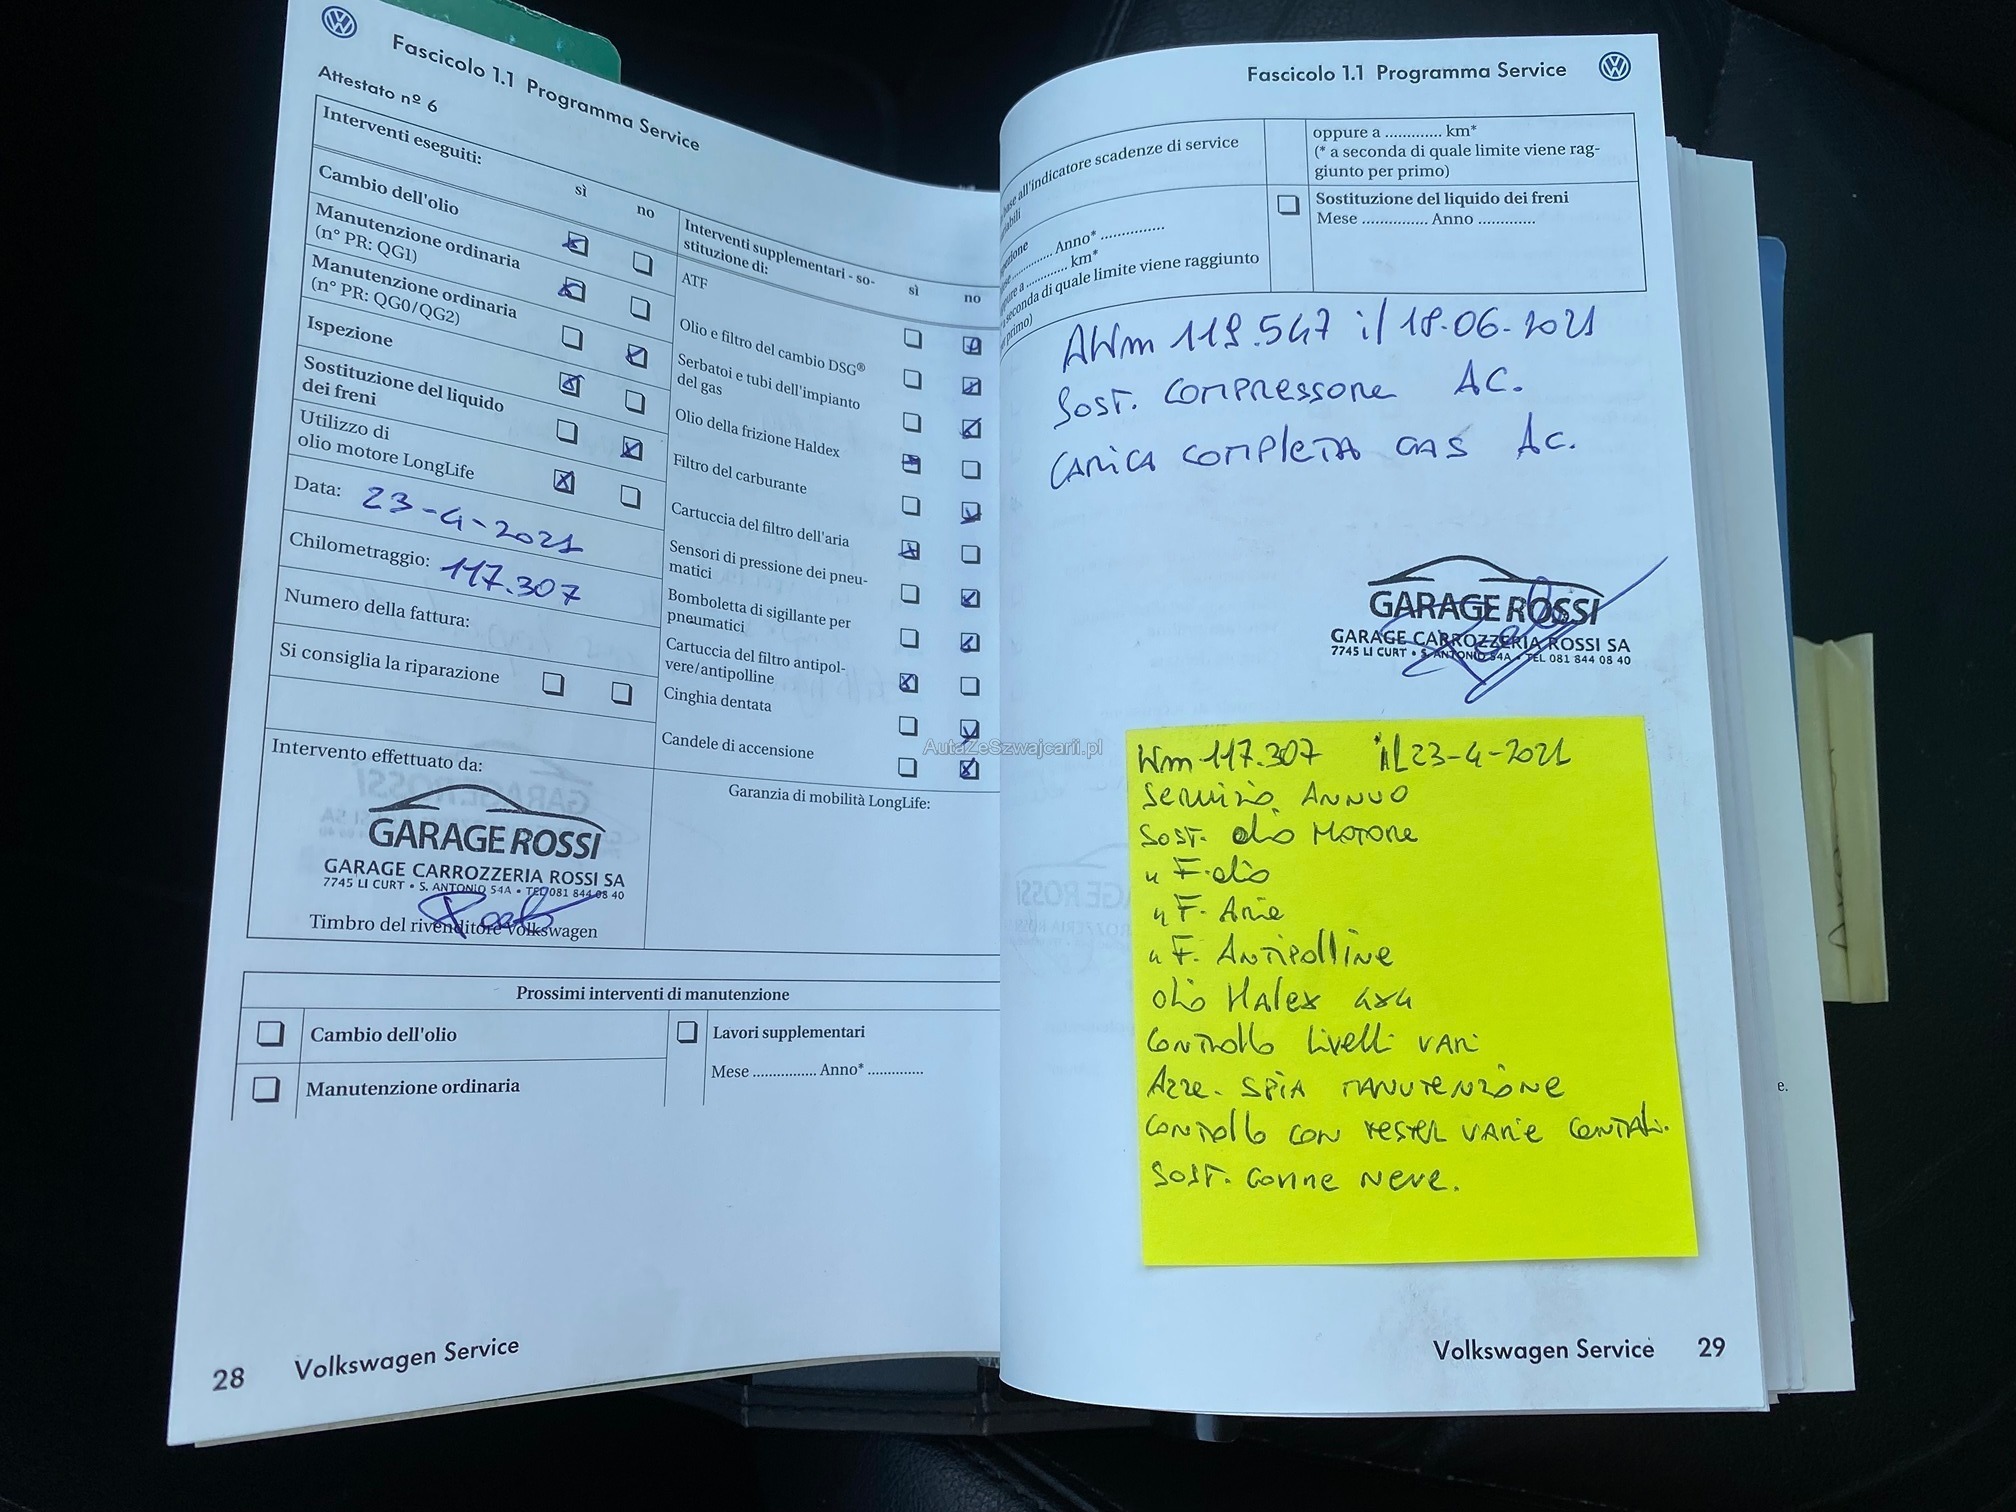 Fascicolo 1.1 Programma Service
Attestato nº 6
Interventi eseguiti:
sì
no
Cambio dell'olio
Manutenzione ordinaria
(n° PR: QG1)
Manutenzione ordinaria
(n° PR: QG0/QG2)
Ispezione
Sostituzione del liquido
dei freni
Utilizzo di
olio motore LongLife
Data: 23-4-2021
Chilometraggio: 117.307
Numero della fattura:
Si consiglia la riparazione
Intervento effettuato da:
GARAGE ROSSI
GARAGE CARROZZERIA ROSSI SA
7745 LI CURT • S. ANTONIO 54A • TEL 081 844 08 40
Timbro del rivenditore Volkswagen
Interventi supplementari - so-
stituzione di:
sì
no
ATF
Olio e filtro del cambio DSG®
Serbatoi e tubi dell'impianto
del gas
Olio della frizione Haldex
Filtro del carburante
Cartuccia del filtro dell'aria
Sensori di pressione dei pneu-
matici
Bomboletta di sigillante per
pneumatici
Cartuccia del filtro antipol-
vere/antipolline
Cinghia dentata
Candele di accensione
Garanzia di mobilità LongLife:
Prossimi interventi di manutenzione
Cambio dell'olio
Manutenzione ordinaria
Lavori supplementari
Mese ................ Anno* ..............
28 Volkswagen Service
Fascicolo 1.1 Programma Service
base all'indicatore scadenze di service
Anno* ................
km*
a seconda di quale limite viene raggiunto
primo)
oppure a ............. km*
(* a seconda di quale limite viene rag-
giunto per primo)
Sostituzione del liquido dei freni
Mese ................ Anno ..............
119.547 il 18.06.2021
SOST. COMPRESSORE AC.
CARICA COMPLETA GAS AC.
GARAGE ROSSI
GARAGE CARROZZERIA ROSSI SA
7745 LI CURT • S. ANTONIO 54A • TEL 081 844 08 40
AutaZeSzwajcarii.pl
117.307 IL 23-4-2021
SERVIZIO ANNUO
SOST. OLIO MOTORE
" F. OLIO
" F. ARIA
" F. ANTIPOLLINE
OLIO HALEX 4x4
CONTROLLO LIVELLI VARI
AZZE. SPIA MANUTENZIONE
CONTROLLO CON TESTER VARIE CENTRALI.
SOST. GOMME NEVE.
e.
Volkswagen Service 29